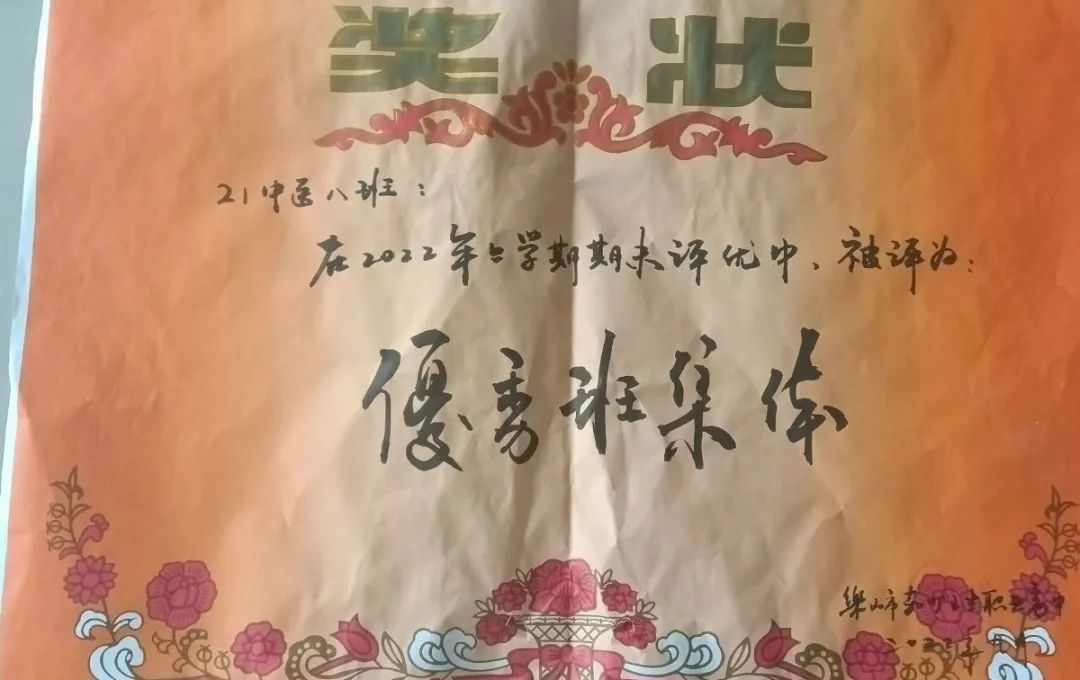 奖状
21中医八班：
在2022年上学期期末评优中、被评为：
優秀班集体
職业